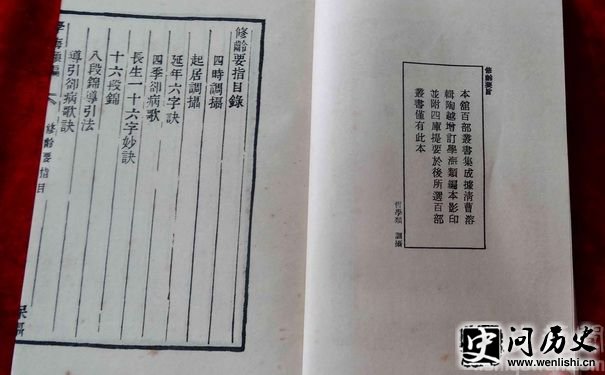 修齡要旨
本館百部叢書集成據清曹溶
輯陶越增訂學海類編本影印
並附四庫提要於後所選百部
叢書僅有此本
哲學類 調攝
修齡要指目錄
四時調攝
起居調攝
延年六字訣
四季卻病歌
長生一十六字妙訣
十六段錦
八段錦導引法
導引卻病歌訣
學海類編
修齡要指目
史问历史
www.wenlishi.cn